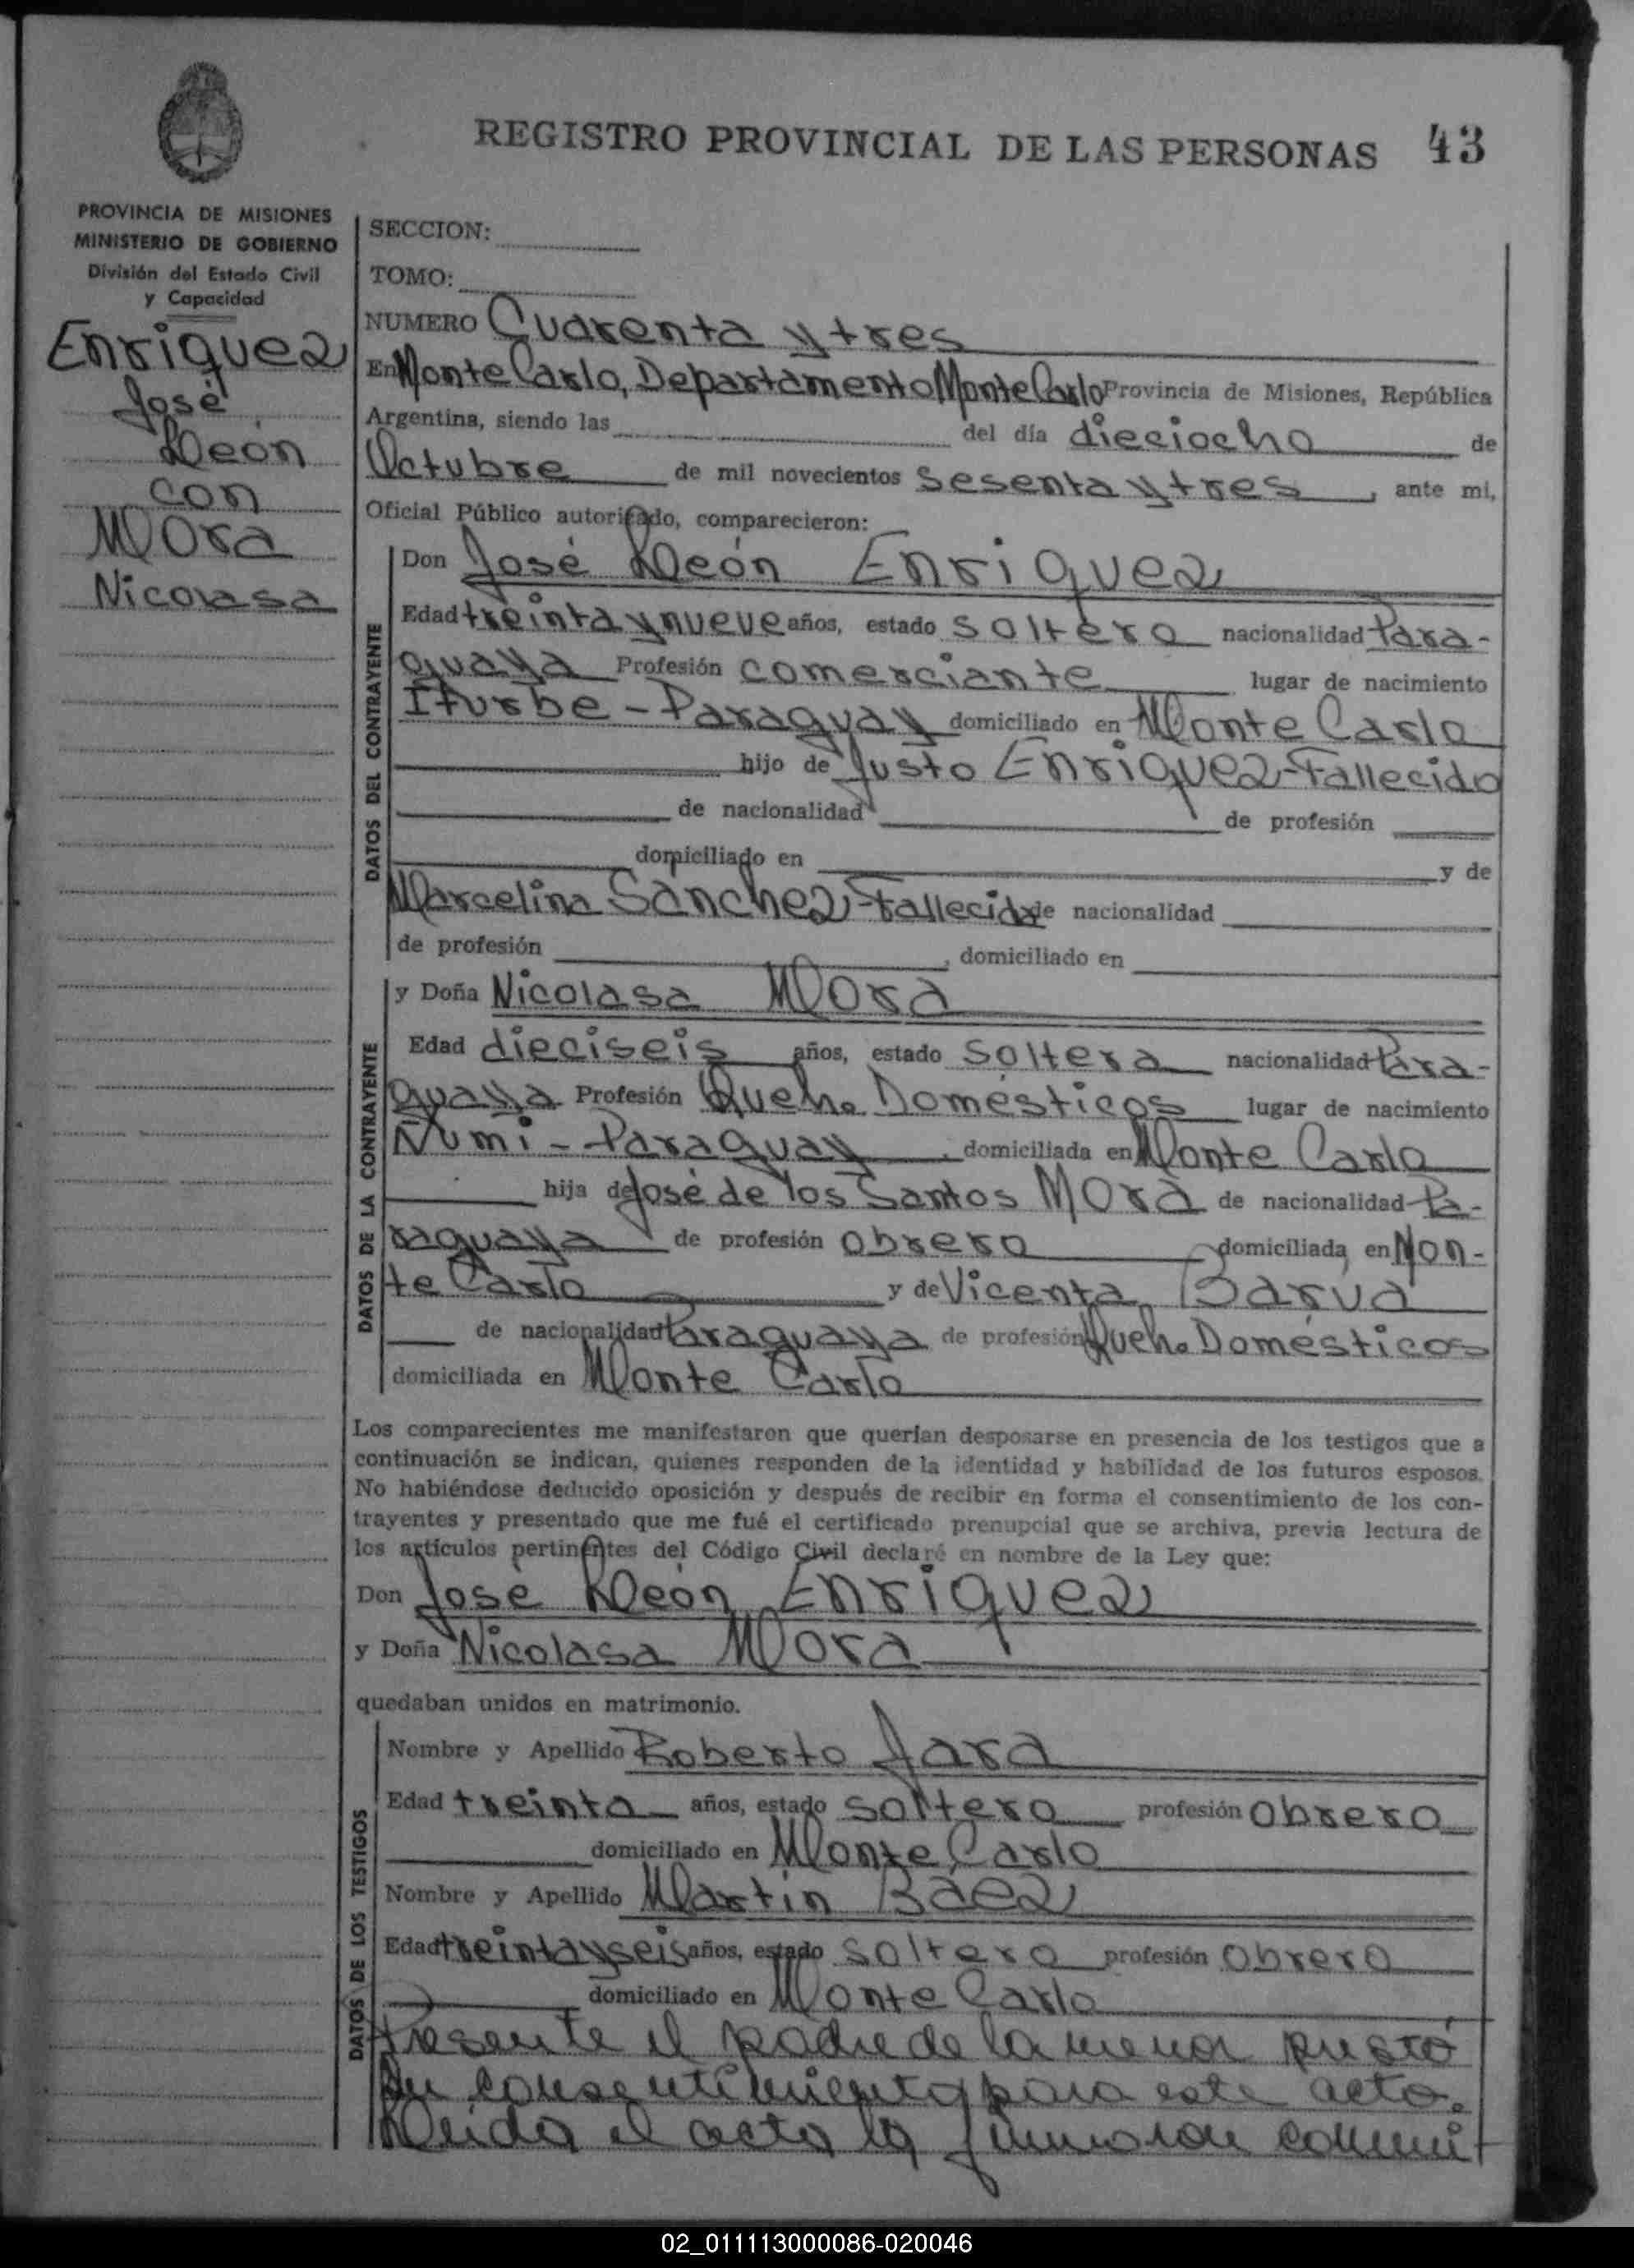 REGISTRO PROVINCIAL DE LAS PERSONAS 43
PROVINCIA DE MISIONES
MINISTERIO DE GOBIERNO
División del Estado Civil
y Capacidad
Enriquez
José
León
con
Mora
Nicolasa
SECCION:
TOMO:
NUMERO Cuarenta y tres
En Monte Carlo, Departamento Monte Carlo Provincia de Misiones, República
Argentina, siendo las del día dieciocho de
Octubre de mil novecientos sesenta y tres, ante mi,
Oficial Público autorizado, comparecieron:
DATOS DEL CONTRAYENTE
Don José León Enriquez
Edad treinta y nueve años, estado soltero nacionalidad Para-
guaya Profesión comerciante lugar de nacimiento
Iturbe - Paraguay domiciliado en Monte Carlo
hijo de Justo Enriquez - Fallecido
de nacionalidad de profesión
domiciliado en y de
Marcelina Sanchez - Fallecida de nacionalidad
de profesión , domiciliado en
DATOS DE LA CONTRAYENTE
y Doña Nicolasa Mora
Edad dieciseis años, estado soltera nacionalidad Para-
guaya Profesión Queh. Domésticos lugar de nacimiento
Ñumi - Paraguay, domiciliada en Monte Carlo
hija de José de los Santos Mora de nacionalidad Pa-
raguaya de profesión obrero domiciliada en Mon-
te Carlo y de Vicenta Barúa
de nacionalidad Paraguaya de profesión Queh. Domésticos
domiciliada en Monte Carlo
Los comparecientes me manifestaron que querían desposarse en presencia de los testigos que a
continuación se indican, quienes responden de la identidad y habilidad de los futuros esposos.
No habiéndose deducido oposición y después de recibir en forma el consentimiento de los con-
trayentes y presentado que me fué el certificado prenupcial que se archiva, previa lectura de
los artículos pertinentes del Código Civil declaré en nombre de la Ley que:
Don José León Enriquez
y Doña Nicolasa Mora
quedaban unidos en matrimonio.
DATOS DE LOS TESTIGOS
Nombre y Apellido Roberto Jara
Edad treinta años, estado soltero profesión obrero
domiciliado en Monte Carlo
Nombre y Apellido Martin Baez
Edad treinta y seis años, estado soltero profesión obrero
domiciliado en Monte Carlo
Presente el padre de la menor prestó
su consentimiento para este acto.
Leída el acta la firmaron conmi
02_011113000086-020046